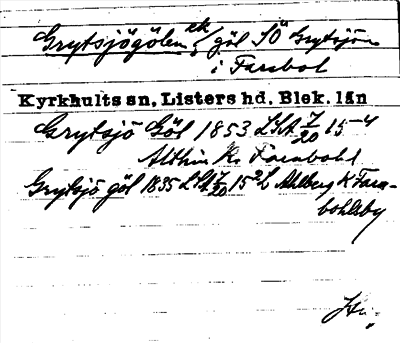 Grytsjögölen ek göl SÖ Grytsjön
i Farabol
Kyrkhults sn, Listers hd. Blek. län
Grytsjö Göl 1853 LSA 7/20 15-4
Althin K. Farabohl
Grytsjö göl 1835 LSA 7/20 15²L Ahlberg K Fara-
bohlsby